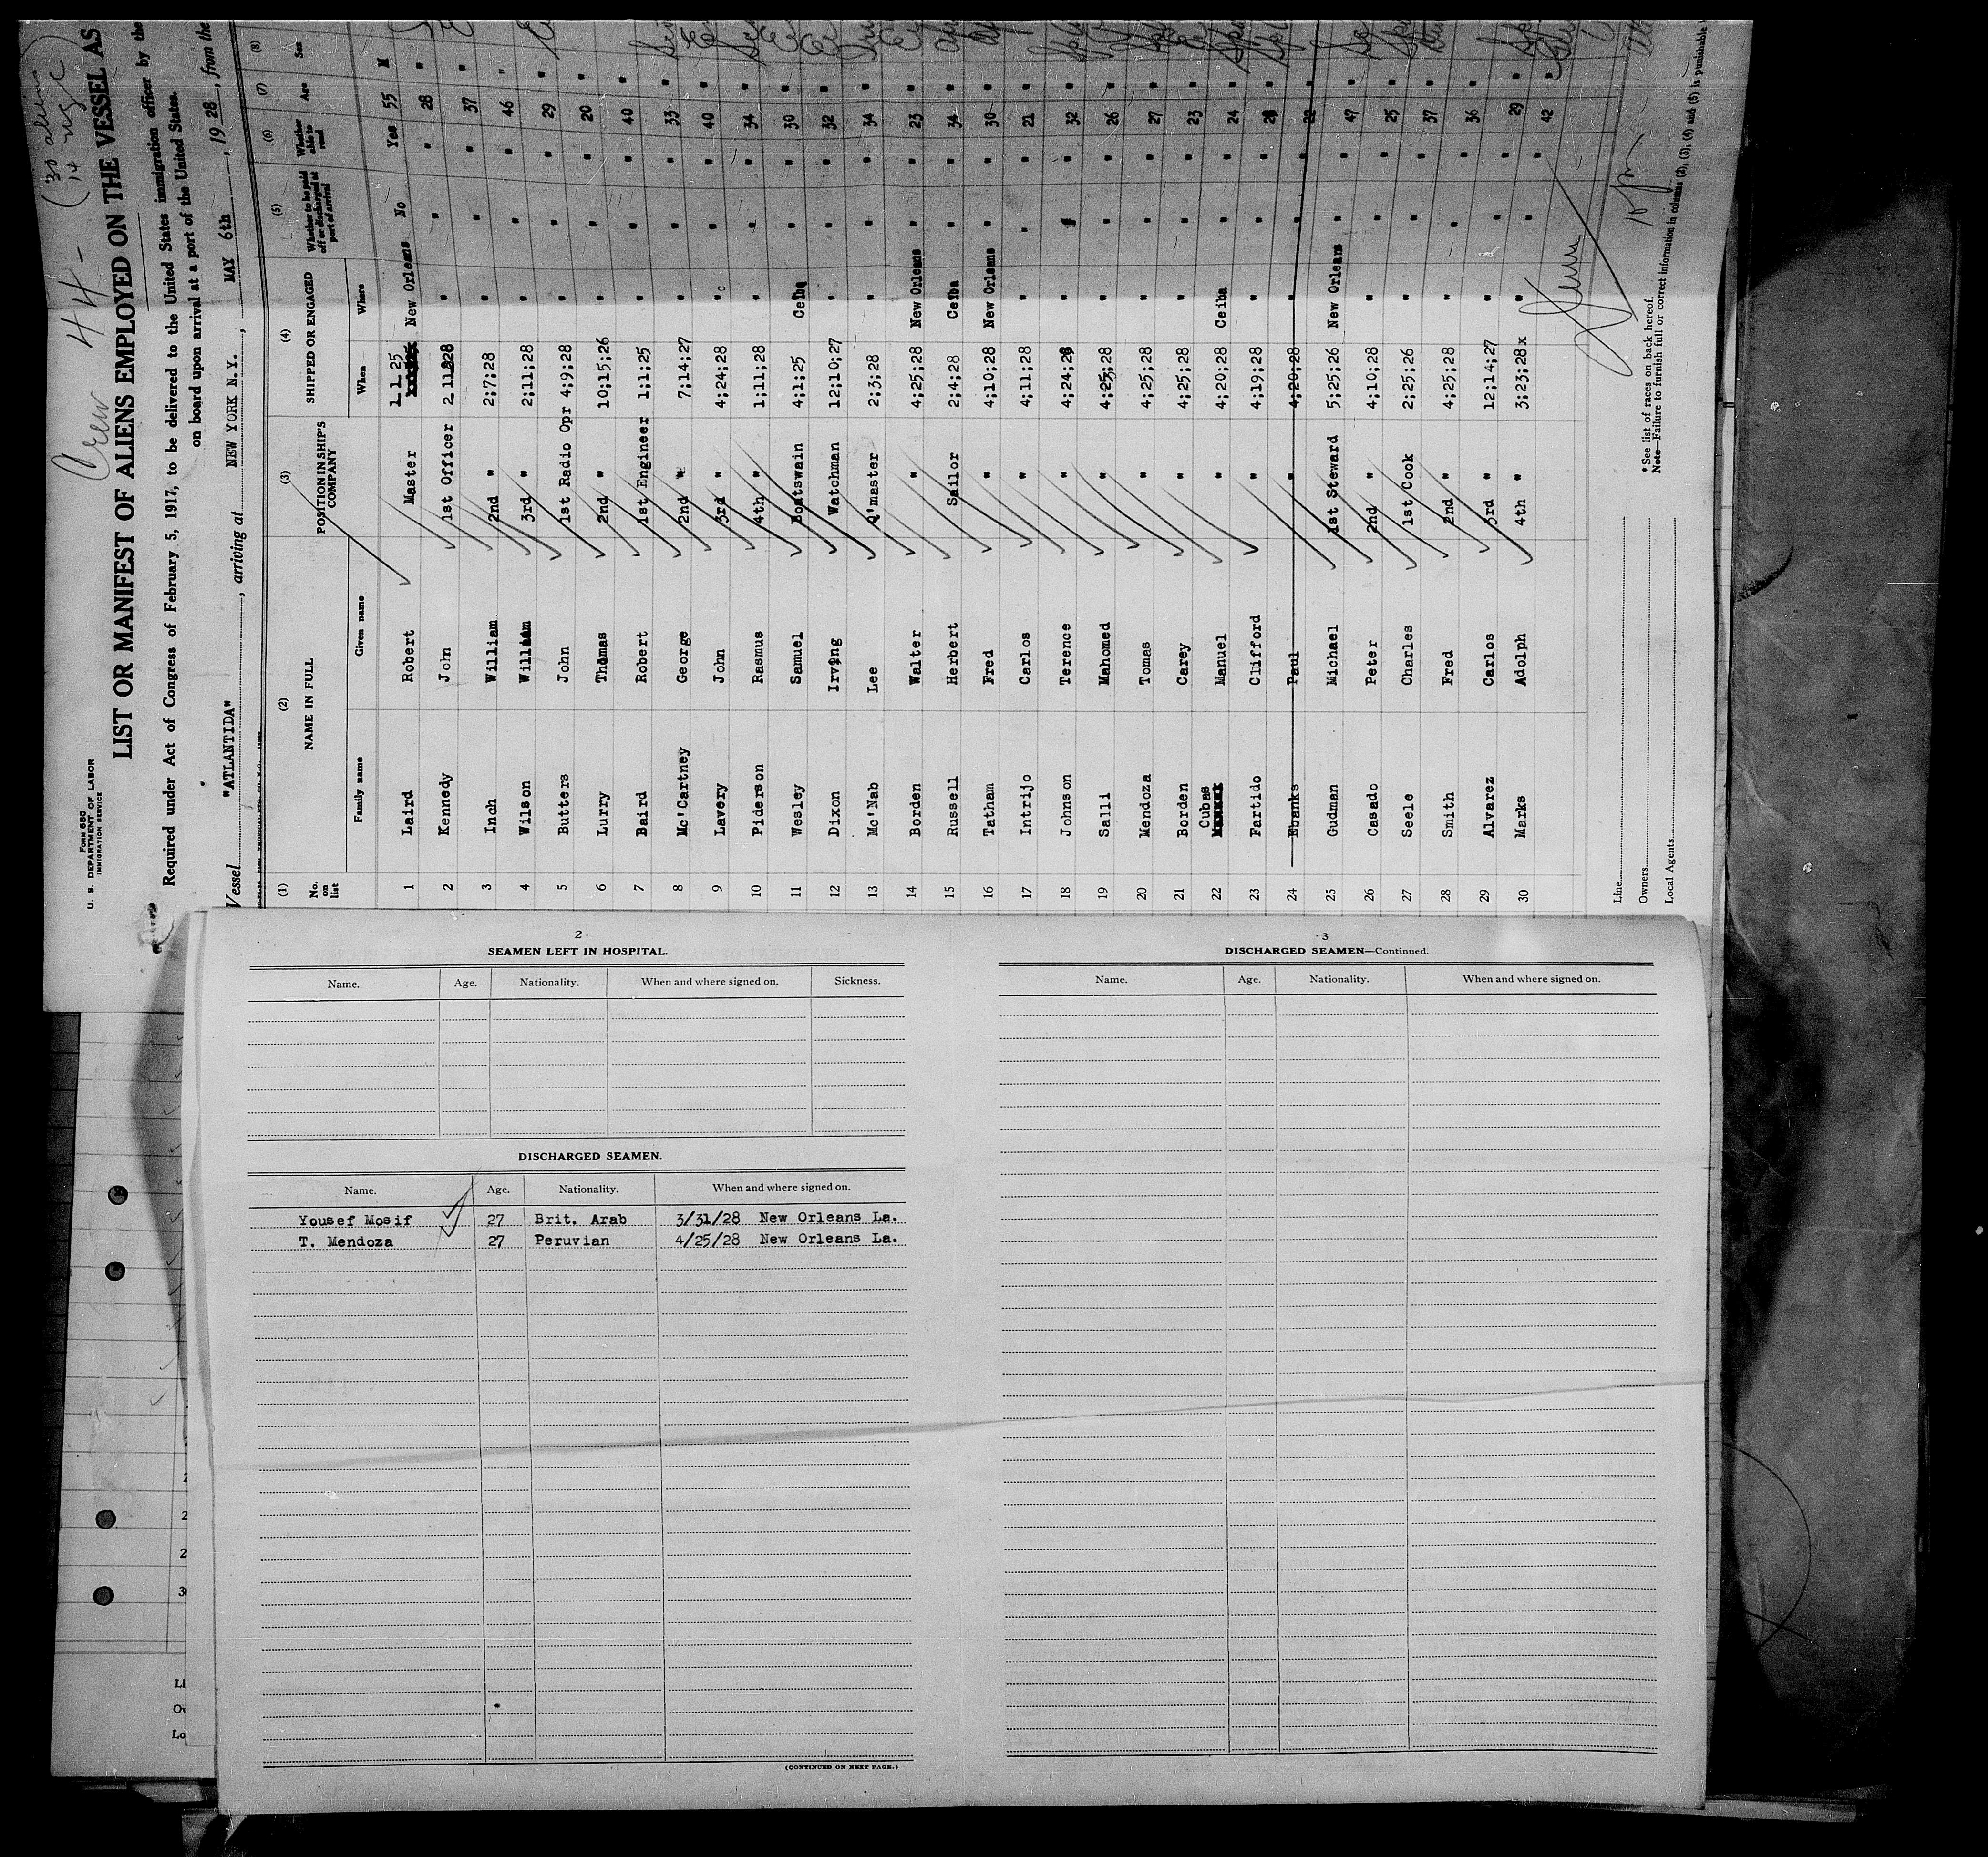 Crew 44 - (30 aliens
FORM 680
U. S. DEPARTMENT OF LABOR
IMMIGRATION SERVICE
LIST OR MANIFEST OF ALIENS EMPLOYED ON THE VESSEL AS
Required under Act of Congress of February 5, 1917, to be delivered to the United States immigration officer by the
on board upon arrival at a port of the United States.
Vessel "ATLANTIDA", arriving at NEW YORK N.Y., MAY 6th, 1928, from the
(1) (2) (3) (4) (5) (6) (7) (8)
No. on list NAME IN FULL POSITION IN SHIP'S COMPANY SHIPPED OR ENGAGED Whether to be paid off or discharged at port of arrival Whether able to read Age Sex
Family name Given name When Where
1 Laird Robert Master 1 1 25 New Orleans No Yes 55 M
2 Kennedy John 1st Officer 2 11 28 " " " 28 "
3 Inch William 2nd " 2;7;28 " " " 37 "
4 Wilson William 3rd " 2;11;28 " " " 46 "
5 Butters John 1st Radio Opr 4;9;28 " " " 29 "
6 Lurry Thomas 2nd " 10;15;26 " " " 20 "
7 Baird Robert 1st Engineer 1;1;25 " " " 40 "
8 Mc'Cartney George 2nd " 7;14;27 " " " 33 "
9 Lavery John 3rd " 4;24;28 " " " 40 "
10 Piderson Rasmus 4th " 1;11;28 " " " 34 "
11 Wesley Samuel Boatswain 4;1;25 Ceiba " " 30 "
12 Dixon Irving Watchman 12;10;27 " " " 32 "
13 Mc'Nab Lee Q'master 2;3;28 " " " 34 "
14 Borden Walter " 4;25;28 New Orleans " " 23 "
15 Russell Herbert Sailor 2;4;28 Ceiba " " 34 "
16 Tatham Fred " 4;10;28 New Orleans " " 30 "
17 Intrijo Carlos " 4;11;28 " " " 21 "
18 Johnson Terence " 4;24;28 " " " 32 "
19 Salli Mahomed " 4;25;28 " " " 26 "
20 Mendoza Tomas " 4;25;28 " " " 27 "
21 Borden Carey " 4;25;28 " " " 23 "
22 Cubas Manuel " 4;20;28 Ceiba " " 24 "
23 Fartido Clifford " 4;19;28 " " " 28 "
24 Ebanks Paul " 4;20;28 " " " 22 "
25 Gudman Michael 1st Steward 5;25;26 New Orleans " " 47 "
26 Casado Peter 2nd " 4;10;28 " " " 25 "
27 Seele Charles 1st Cook 2;25;26 " " " 37 "
28 Smith Fred 2nd " 4;25;28 " " " 36 "
29 Alvarez Carlos 3rd " 12;14;27 " " " 29 "
30 Marks Adolph 4th " 3;23;28 x " " " 42 "
Line
Owners
Local Agents
* See list of races on back hereof.
Note—Failure to furnish full or correct information in columns (2), (3), (4) and (5) is punishable
2
SEAMEN LEFT IN HOSPITAL.
Name. Age. Nationality. When and where signed on. Sickness.
DISCHARGED SEAMEN.
Name. Age. Nationality. When and where signed on.
Yousef Mosif 27 Brit. Arab 3/31/28 New Orleans La.
T. Mendoza 27 Peruvian 4/25/28 New Orleans La.
(CONTINUED ON NEXT PAGE.)
3
DISCHARGED SEAMEN—Continued.
Name. Age. Nationality. When and where signed on.